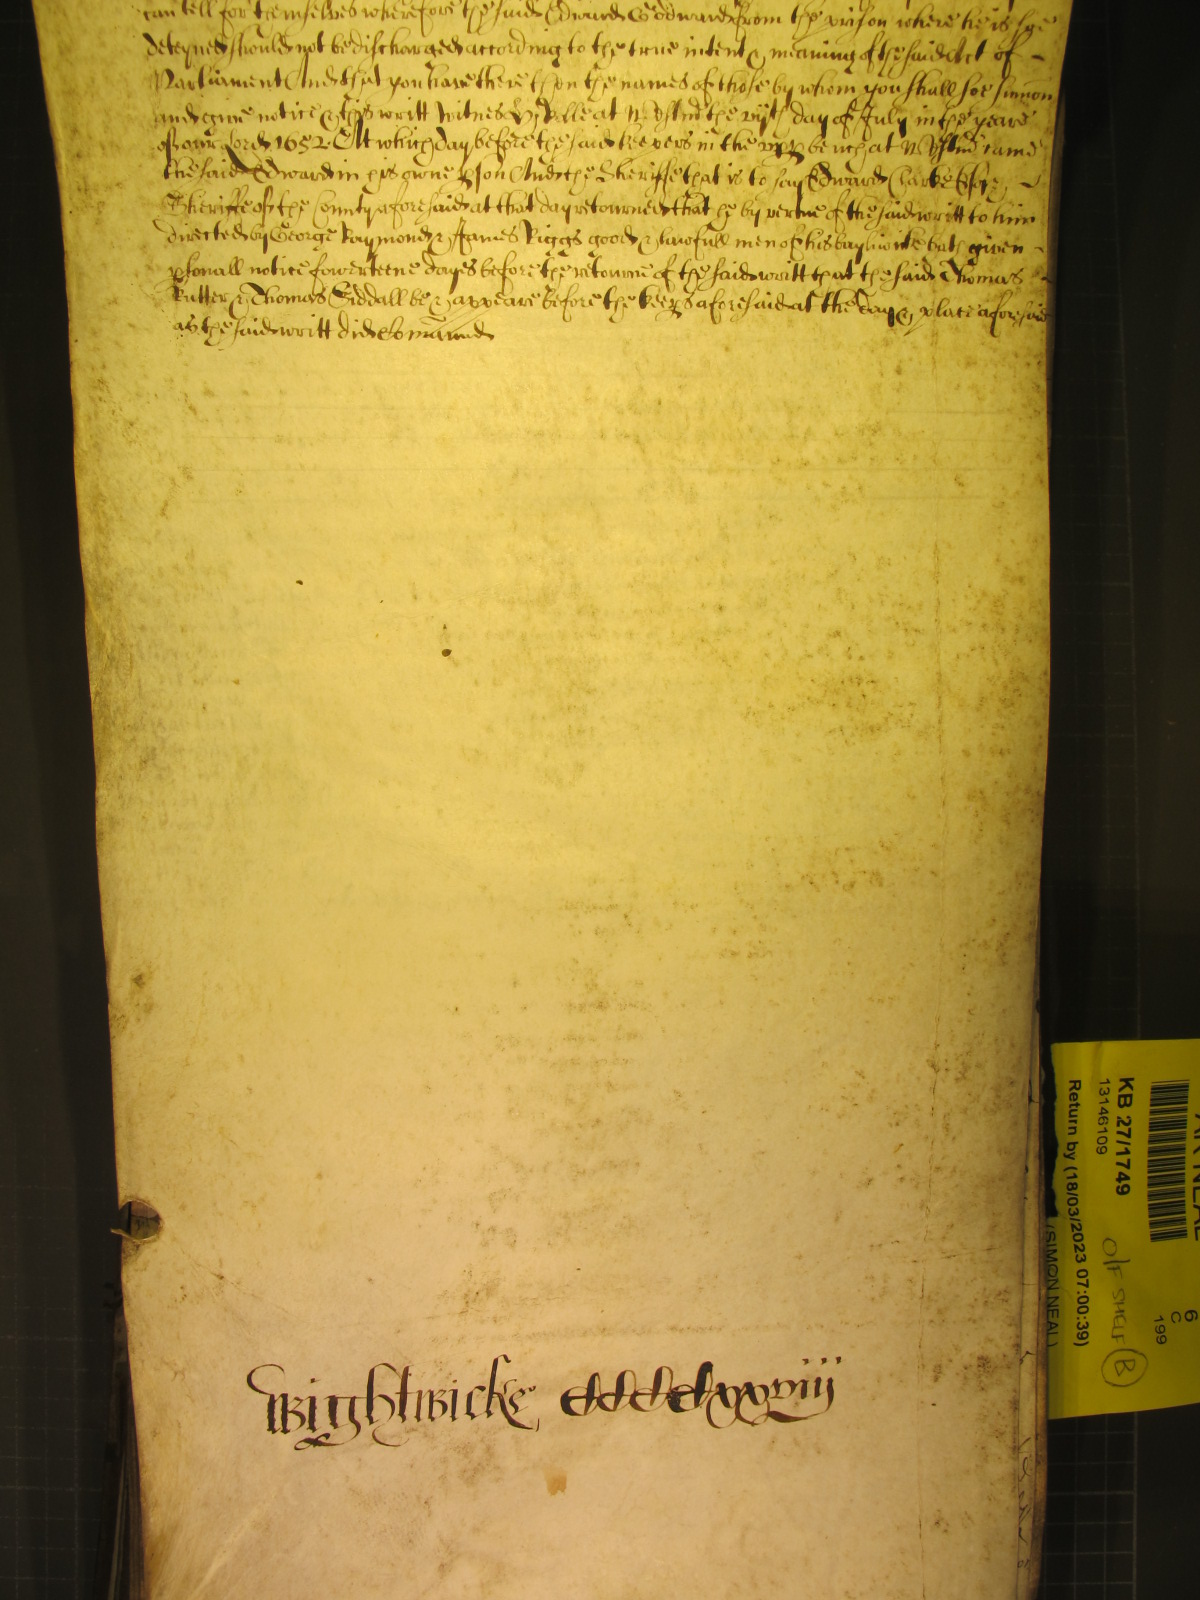 can tell for themselves wherefore the said Edward Goodward from the prison where he is soe
deteyned should not be discharged according to the true intent & meaning of the said Act of
Parliament And that you have there then the names of those by whom you shall soe sumon
and give notice & this writt Witnes H Rolle at Westm the day of July in the yeare
of our Lord 1652 At which day before the said keepers in the upp bench at Westm came
the said Edward in his owne pson And the Sheriffe that is to say Edward Clarke Esqr
Sheriffe of the County aforesaid at that day retourned that he by vertue of the said writt to him
directed by George Raymond & James Riggs good & lawfull men of his bayliwicke hath given
psonall notice fowerteene dayes before the retourne of the said writt that the said Thomas
Rutter & Thomas Siddall be & appeare before the keeps aforesaid at the day & place aforesaid
as the said writt did comaund
Wightwicke
KB 27/1749
13146109
Return by (18/03/2023 07:00:39)
(SIMON NEAL)
O/F SHELF B
6
C
199